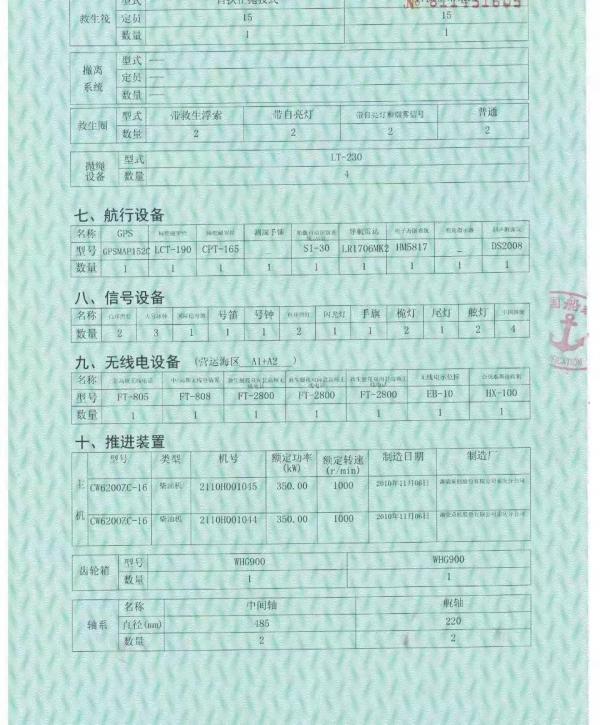 型式
№ 811451605
救生筏 定员 15 15
数量 1 1
撤离系统 型式 ——
定员 ——
数量 ——
救生圈 型式 带救生浮索 带自亮灯 带自亮灯和烟雾信号 普通
数量 2 2 2 2
抛绳设备 型式 LT-230
数量 4
七、航行设备
名称 GPS 测深手锤 导航雷达
型号 GPSMAP152C LCT-190 CPT-165 SI-30 LR1706MK2 HM5817 — DS2008
数量 1 1 1 1 1 1 1 1 1
八、信号设备
名称 号笛 号钟 闪光灯 手旗 桅灯 尾灯 舷灯
数量 2 3 1 1 1 2 1 1 2 1 2 4
九、无线电设备 (营运海区 A1+A2 )
名称 无线电示位标
型号 FT-805 FT-808 FT-2800 FT-2800 FT-2800 EB-10 HX-100
数量 1 1 1 1 1 1 1
十、推进装置
型号 类型 机号 额定功率(kW) 额定转速(r/min) 制造日期 制造厂
主机 CW6200ZC-16 柴油机 2110H001045 350.00 1000 2010年11月06日
CW6200ZC-16 柴油机 2110H001044 350.00 1000 2010年11月06日
齿轮箱 型号 WHG900 WHG900
数量 1 1
轴系 名称 中间轴 艉轴
直径(mm) 485 220
数量 2 2